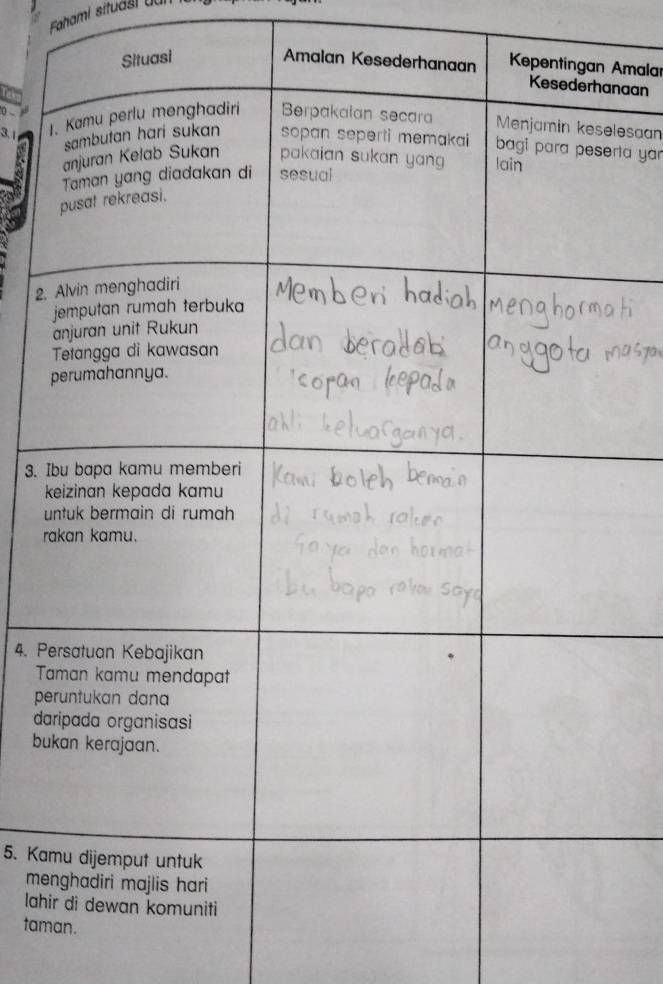 Fahami situasi
Situasi
Amalan Kesederhanaan
Kepentingan Amalan
Kesederhanaan
1. Kamu perlu menghadiri
sambutan hari sukan
anjuran Kelab Sukan
Taman yang diadakan di
pusat rekreasi.
Berpakaian secara
sopan seperti memakai
pakaian sukan yang
sesuai
Menjamin keselesaan
bagi para peserta
lain
2. Alvin menghadiri
jemputan rumah terbuka
anjuran unit Rukun
Tetangga di kawasan
perumahannya.
Memberi hadiah
dan beradab
sopan kepada
ahli keluarganya.
Menghormati
anggota
3. Ibu bapa kamu memberi
keizinan kepada kamu
untuk bermain di rumah
rakan kamu.
Kami boleh bemain
di rumah rakan
saya dan hormat
ibu bapa rakan saya
4. Persatuan Kebajikan
Taman kamu mendapat
peruntukan dana
daripada organisasi
bukan kerajaan.
5. Kamu dijemput untuk
menghadiri majlis hari
lahir di dewan komuniti
taman.